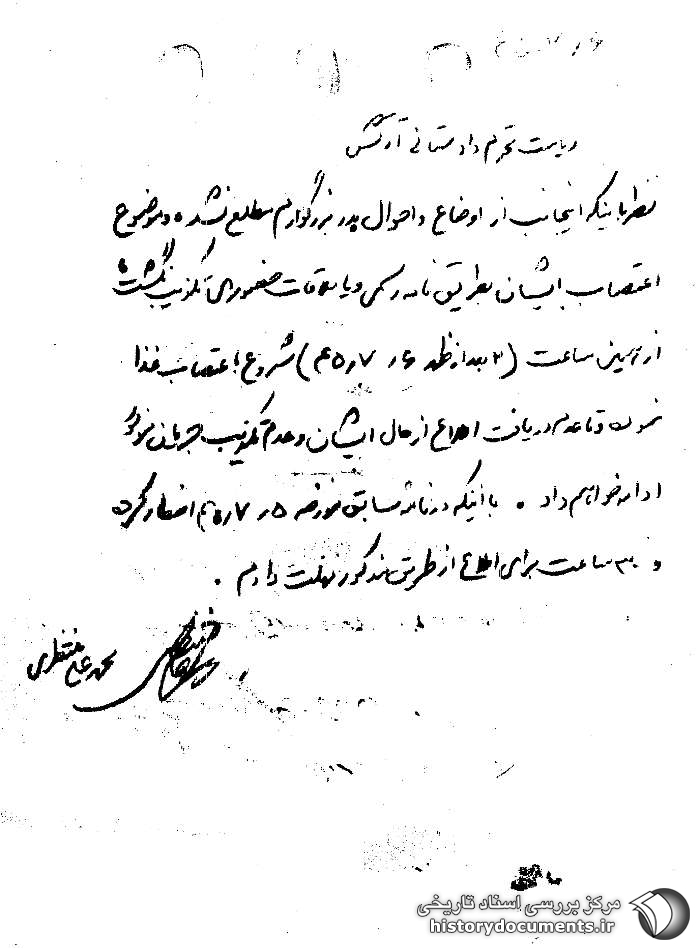 ریاست محترم دادستانی آرتش
نظر باینکه اینجانب از اوضاع و احوال پدر بزرگوارم مطلع نشده و موضوع
اعتصاب ایشان بطریق نامه رسمی و یا ملاقات حضوری تکذیب نگشت
از همین ساعت (۲ بعداز ظهر ۶ر۷ر۴۵) شروع باعتصاب غذا
نموده و تا عدم دریافت اطلاع از حال ایشان و عدم تکذیب جریان
ادامه خواهم داد . با اینکه در نامه سابق مورخه ۵ر۷ر۴۵ اخطار کرده
و ۳۰ ساعت برای اطلاع از طریق مذکور مهلت دادم .
محمد علی منتظری
مرکز بررسی اسناد تاریخی
historydocuments.ir